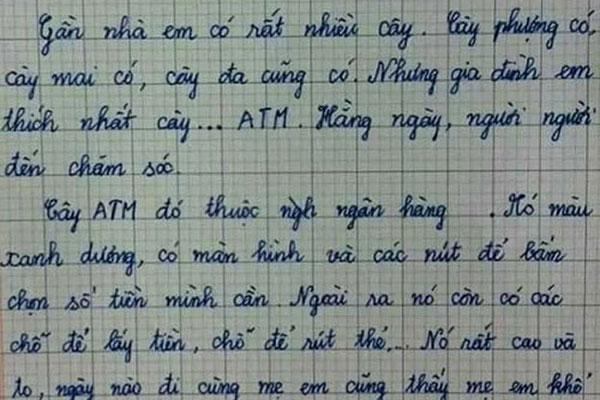 Gần nhà em có rất nhiều cây. Cây phượng có,
cây mai có, cây đa cũng có. Nhưng gia đình em
thích nhất cây... ATM. Hằng ngày, người người
đến chăm sóc.
Cây ATM đó thuộc ngh ngân hàng . Nó màu
xanh dương, có màn hình và các nút để bấm
chọn số tiền mình cần Ngoài ra nó còn có các
chỗ để lấy tiền, chỗ để rút thẻ... Nó rất cao và
to, ngày nào đi cùng mẹ em cũng thấy mẹ em khổ